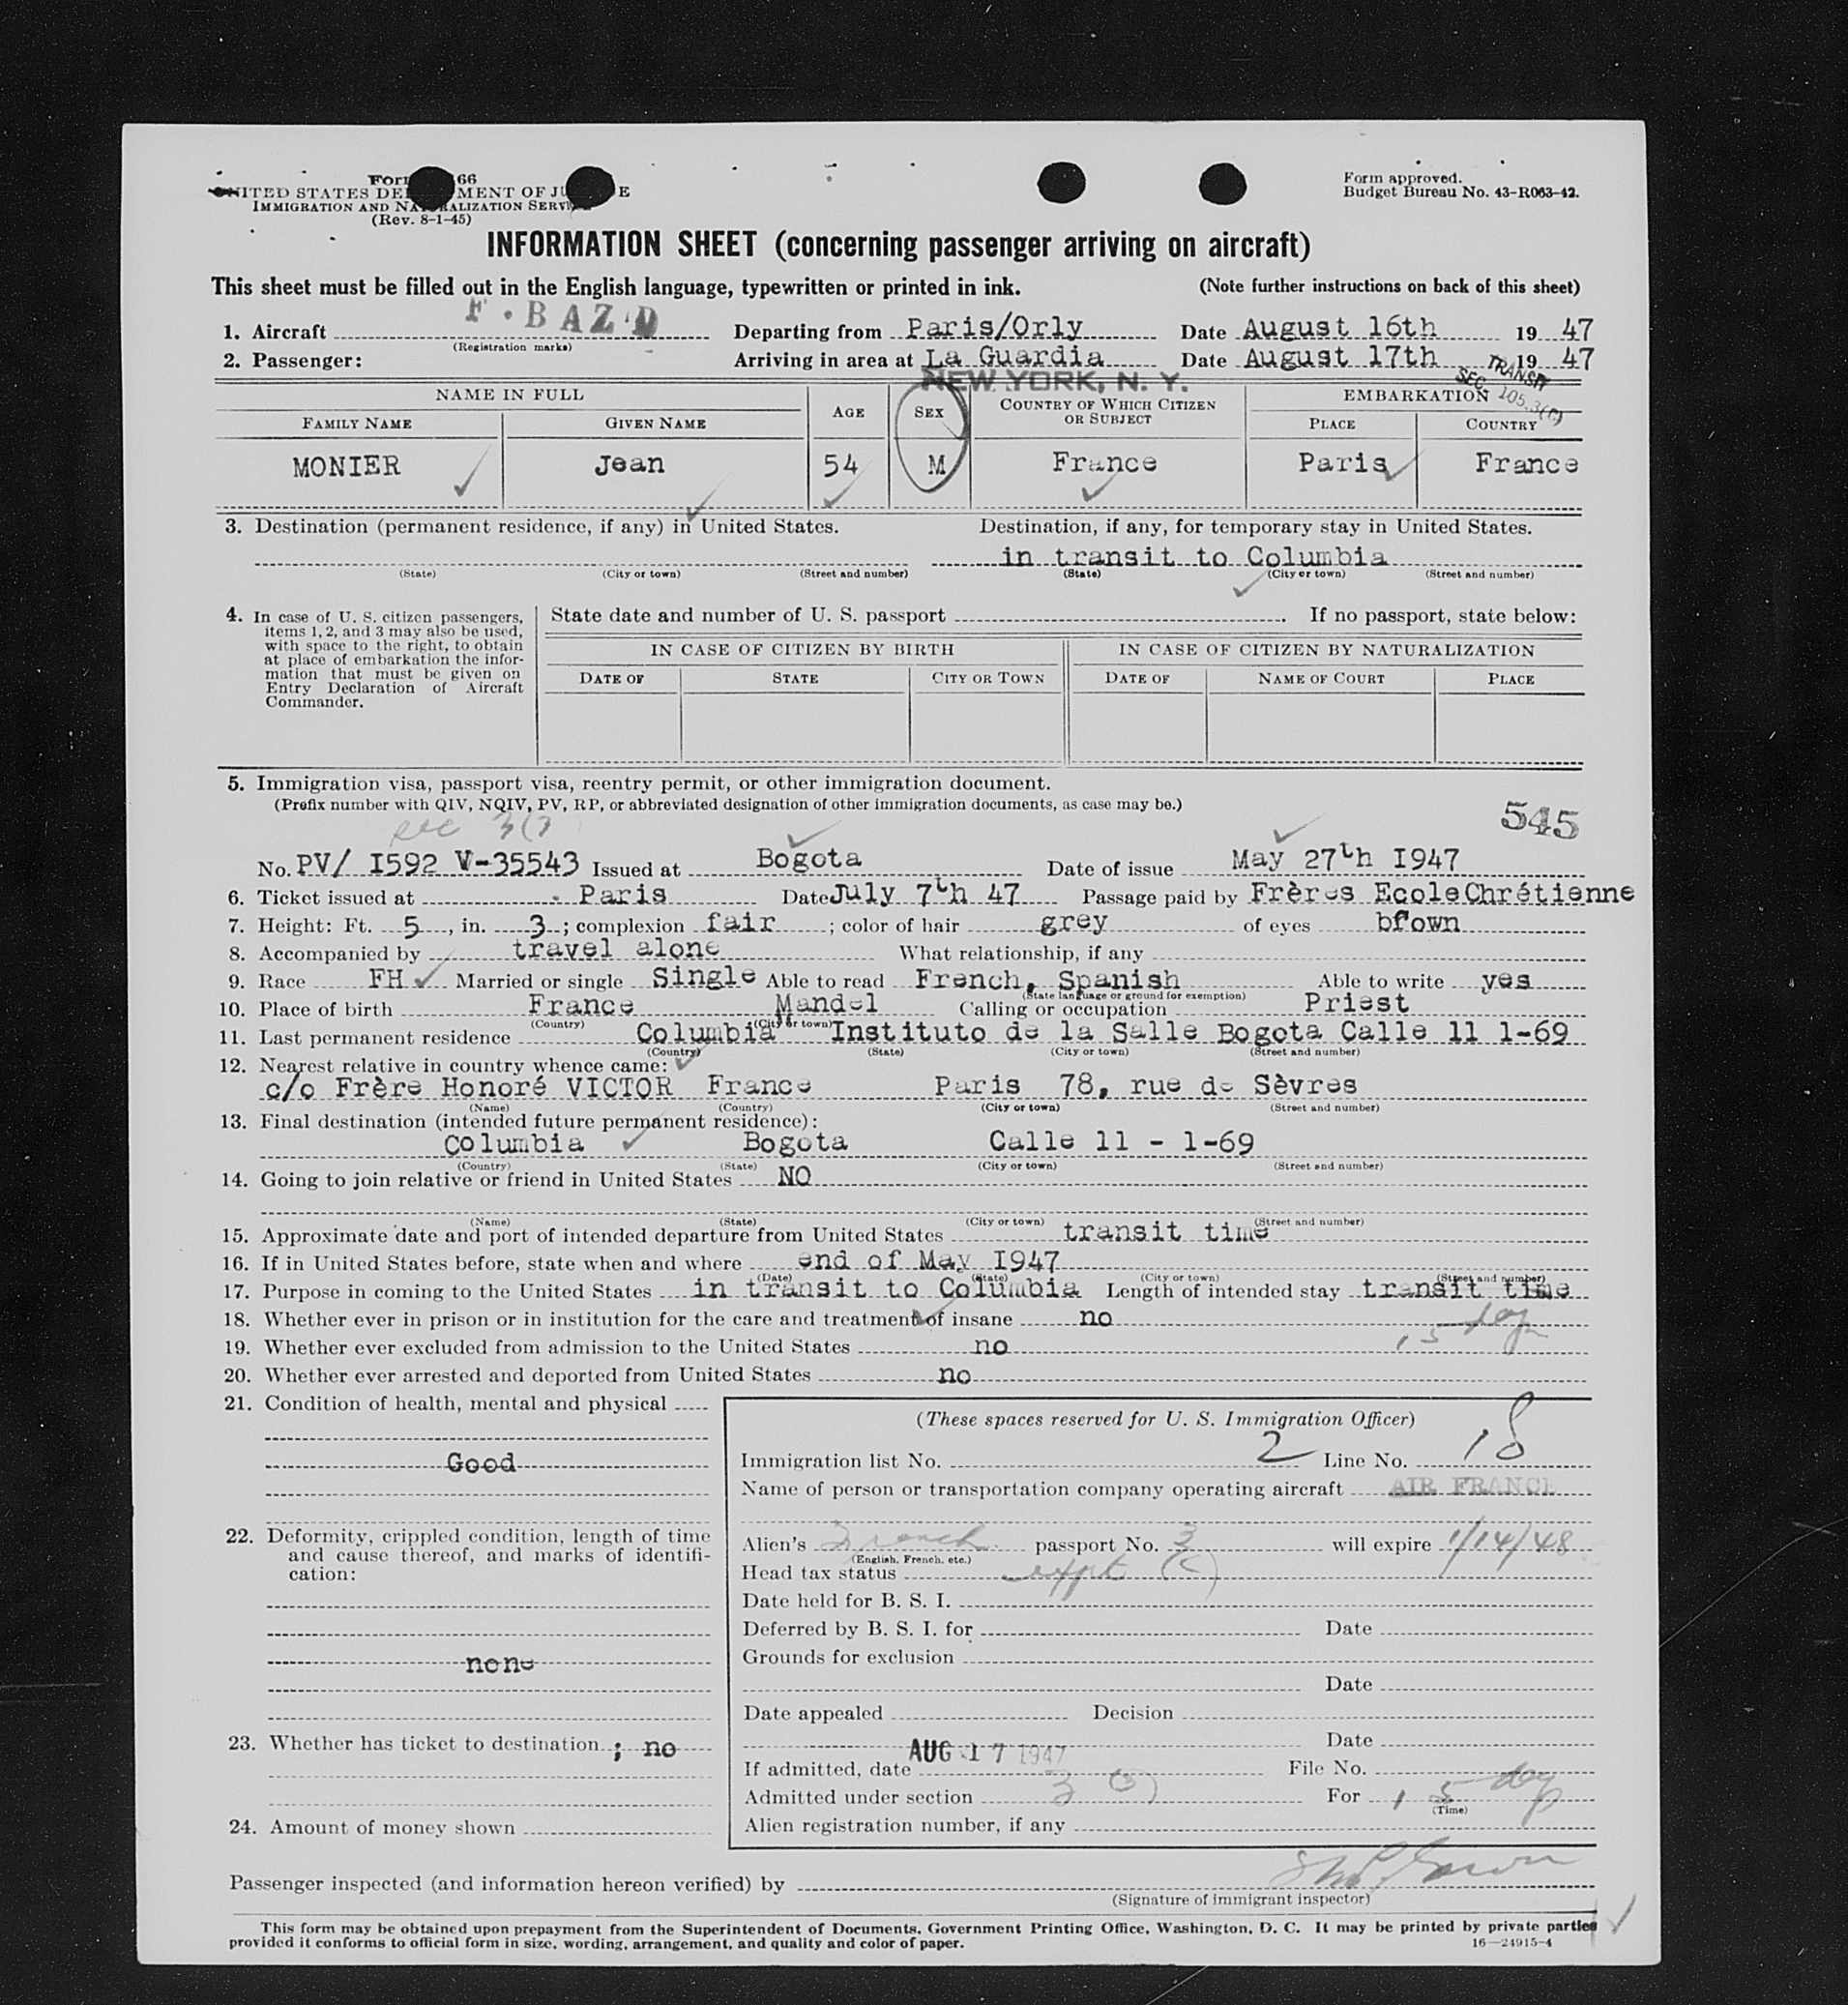 Form 66
UNITED STATES DEPARTMENT OF JUSTICE
IMMIGRATION AND NATURALIZATION SERVICE
(Rev. 8-1-45)
Form approved.
Budget Bureau No. 43-R063-42.
INFORMATION SHEET (concerning passenger arriving on aircraft)
This sheet must be filled out in the English language, typewritten or printed in ink. (Note further instructions on back of this sheet)
1. Aircraft F. BAZD Departing from Paris/Orly Date August 16th 19 47
(Registration marks)
2. Passenger: Arriving in area at La Guardia Date August 17th 19 47
NEW YORK, N. Y.
TRANSIT
SEC. 105.3(c)
NAME IN FULL AGE SEX COUNTRY OF WHICH CITIZEN OR SUBJECT EMBARKATION
FAMILY NAME GIVEN NAME PLACE COUNTRY
MONIER Jean 54 M France Paris France
3. Destination (permanent residence, if any) in United States. Destination, if any, for temporary stay in United States.
in transit to Columbia
(State) (City or town) (Street and number) (State) (City or town) (Street and number)
4. In case of U. S. citizen passengers, items 1, 2, and 3 may also be used, with space to the right, to obtain at place of embarkation the information that must be given on Entry Declaration of Aircraft Commander.
State date and number of U. S. passport . If no passport, state below:
IN CASE OF CITIZEN BY BIRTH IN CASE OF CITIZEN BY NATURALIZATION
DATE OF STATE CITY OR TOWN DATE OF NAME OF COURT PLACE
5. Immigration visa, passport visa, reentry permit, or other immigration document.
(Prefix number with QIV, NQIV, PV, RP, or abbreviated designation of other immigration documents, as case may be.)
545
No. PV/ I592 V-35543 Issued at Bogota Date of issue May 27th I947
6. Ticket issued at Paris Date July 7th 47 Passage paid by Frères Ecole Chrétienne
7. Height: Ft. 5, in. 3; complexion fair; color of hair grey of eyes brown
8. Accompanied by travel alone What relationship, if any
9. Race FH Married or single Single Able to read French, Spanish Able to write yes
(State language or ground for exemption)
10. Place of birth France Mandel Calling or occupation Priest
(Country) (City or town)
11. Last permanent residence Columbia Instituto de la Salle Bogota Calle 11 1-69
(Country) (State) (City or town) (Street and number)
12. Nearest relative in country whence came:
c/o Frère Honoré VICTOR France Paris 78, rue de Sèvres
(Name) (Country) (City or town) (Street and number)
13. Final destination (intended future permanent residence):
Columbia Bogota Calle 11 - 1-69
(Country) (State) (City or town) (Street and number)
14. Going to join relative or friend in United States NO
(Name) (State) (City or town) (Street and number)
15. Approximate date and port of intended departure from United States transit time
16. If in United States before, state when and where end of May I947
(Date) (State) (City or town) (Street and number)
17. Purpose in coming to the United States in transit to Columbia Length of intended stay transit time
18. Whether ever in prison or in institution for the care and treatment of insane no
15 day
19. Whether ever excluded from admission to the United States no
20. Whether ever arrested and deported from United States no
21. Condition of health, mental and physical
Good
22. Deformity, crippled condition, length of time and cause thereof, and marks of identification:
none
23. Whether has ticket to destination ; no
24. Amount of money shown
(These spaces reserved for U. S. Immigration Officer)
Immigration list No. 2 Line No. 18
Name of person or transportation company operating aircraft AIR FRANCE
Alien's French passport No. 3 will expire 1/14/48
(English, French, etc.)
Head tax status expt (c)
Date held for B. S. I.
Deferred by B. S. I. for Date
Grounds for exclusion
Date
Date appealed Decision
Date
If admitted, date AUG 17 1947 File No.
Admitted under section 3 (3) For 15 day
(Time)
Alien registration number, if any
Passenger inspected (and information hereon verified) by
(Signature of immigrant inspector)
This form may be obtained upon prepayment from the Superintendent of Documents, Government Printing Office, Washington, D. C. It may be printed by private parties
provided it conforms to official form in size, wording, arrangement, and quality and color of paper.
16—24915-4